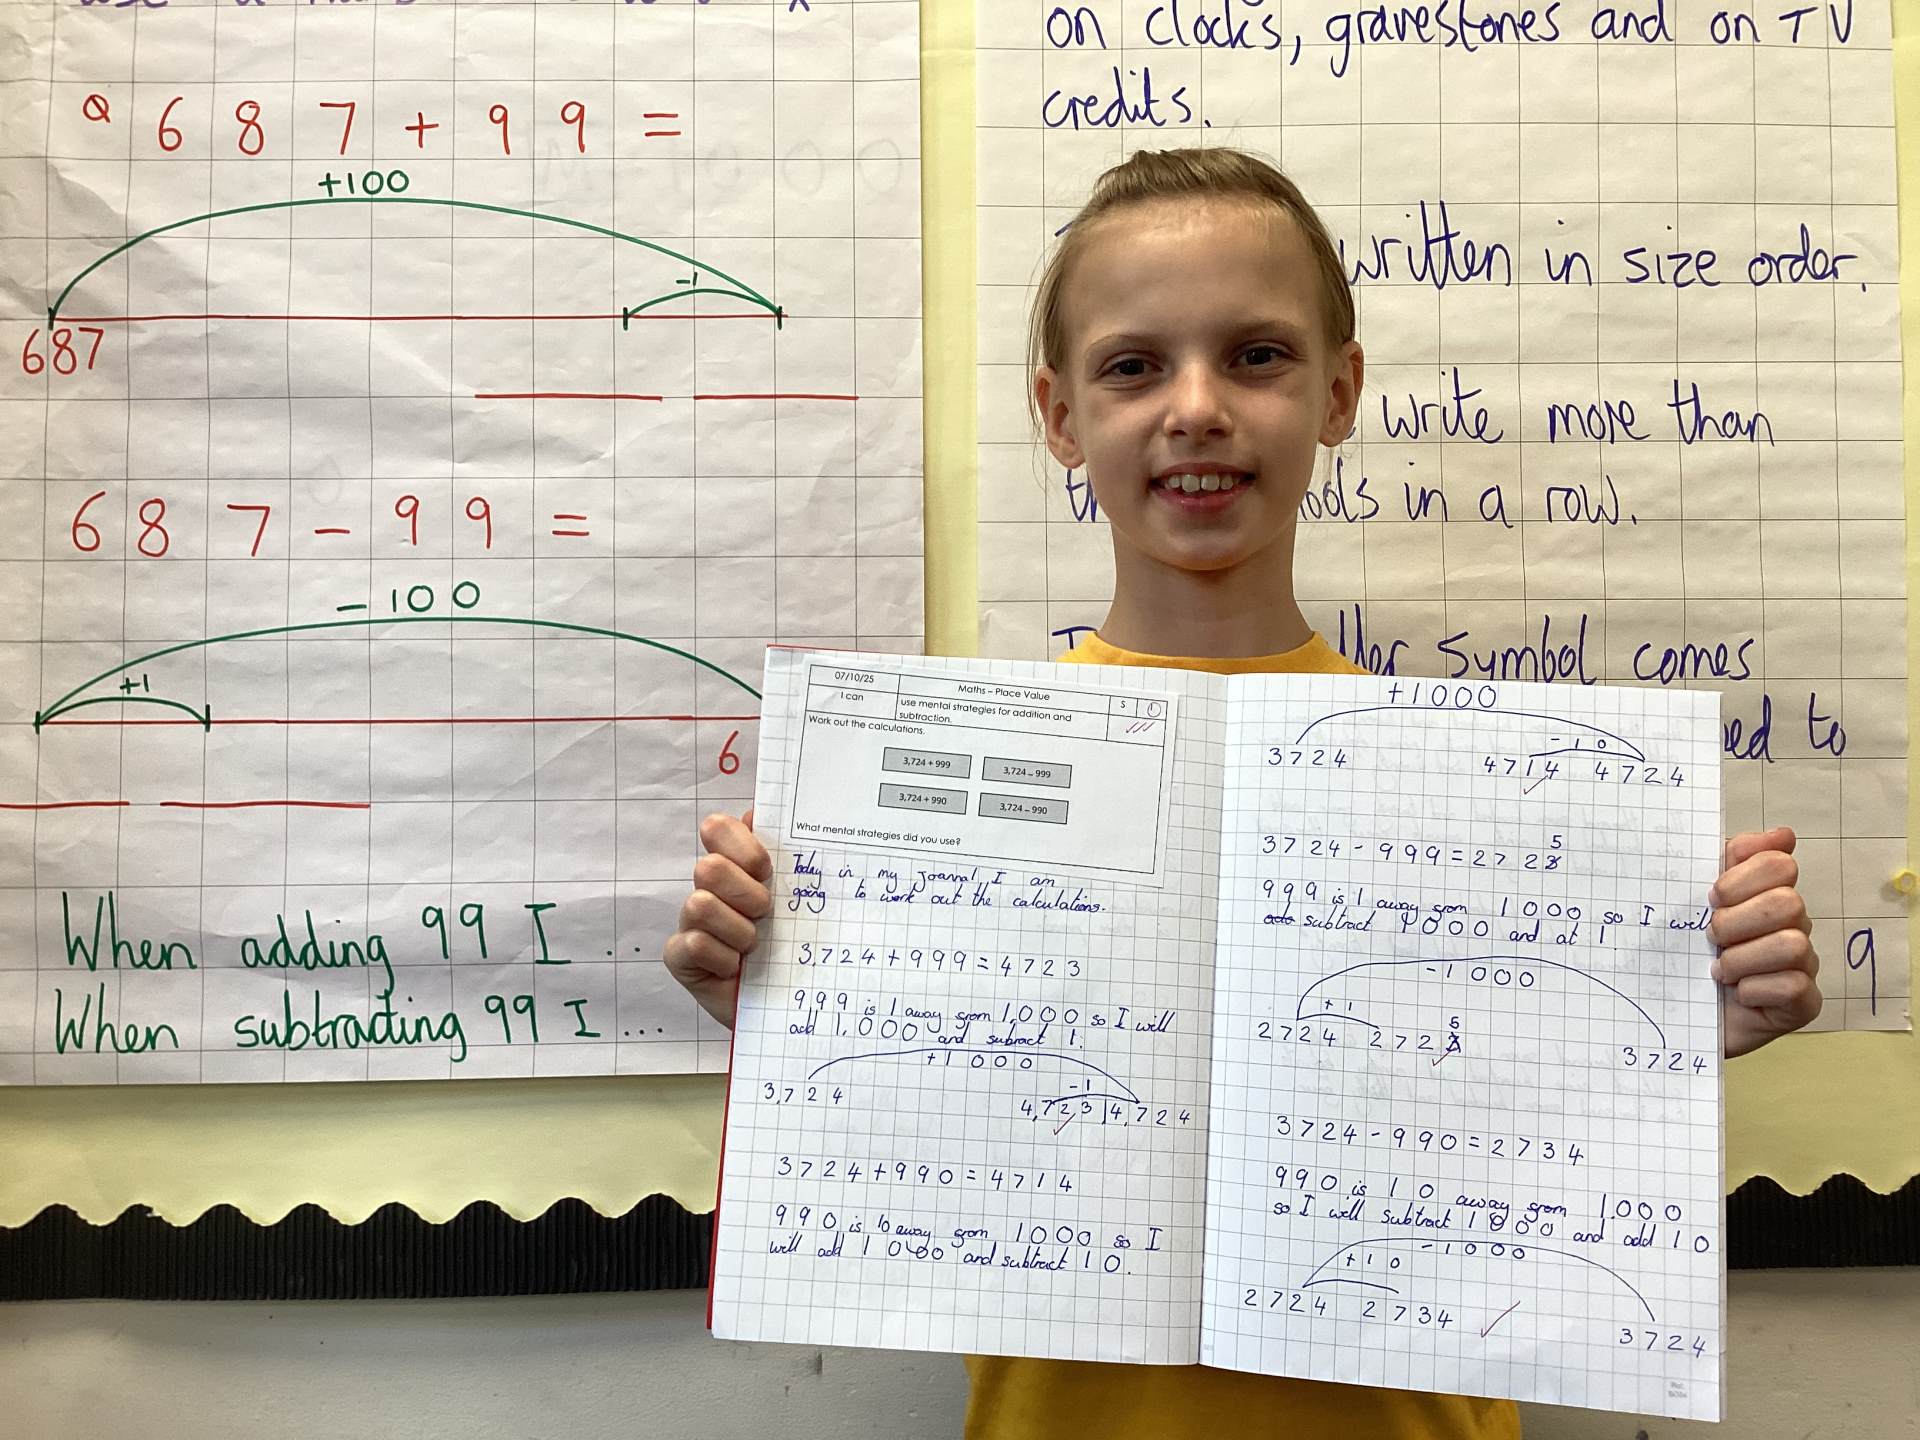 Q 687 + 99 =
+100
-1
687
687 - 99 =
-100
+1
6
When adding 99 I ...
When subtracting 99 I ...
on clocks, gravestones and on TV
credits.
written in size order.
write more than
in a row.
symbol comes
to
9
07/10/25
Maths – Place Value
S
I can
use mental strategies for addition and
subtraction.
Work out the calculations.
3,724 + 999
3,724 – 999
3,724 + 990
3,724 – 990
What mental strategies did you use?
Today in my Joarnal I am
going to work out the calculations.
3,724 + 999 = 4723
999 is 1 away grom 1,000 so I will
add 1,000 and subract 1.
+1000
-1
3,724
4,723 4,724
3724 + 990 = 4714
990 is 10 away grom 1000 so I
will add 1000 and subtract 10.
+1000
-10
3724
4714 4724
3724 - 999 = 2725
999 is 1 away grom 1000 so I will
subtract 1000 and at 1.
-1000
+1
2724 2725
3724
3724 - 990 = 2734
990 is 10 away grom 1.000
so I will subtract 1000 and add 10
-1000
+10
2724 2734
3724